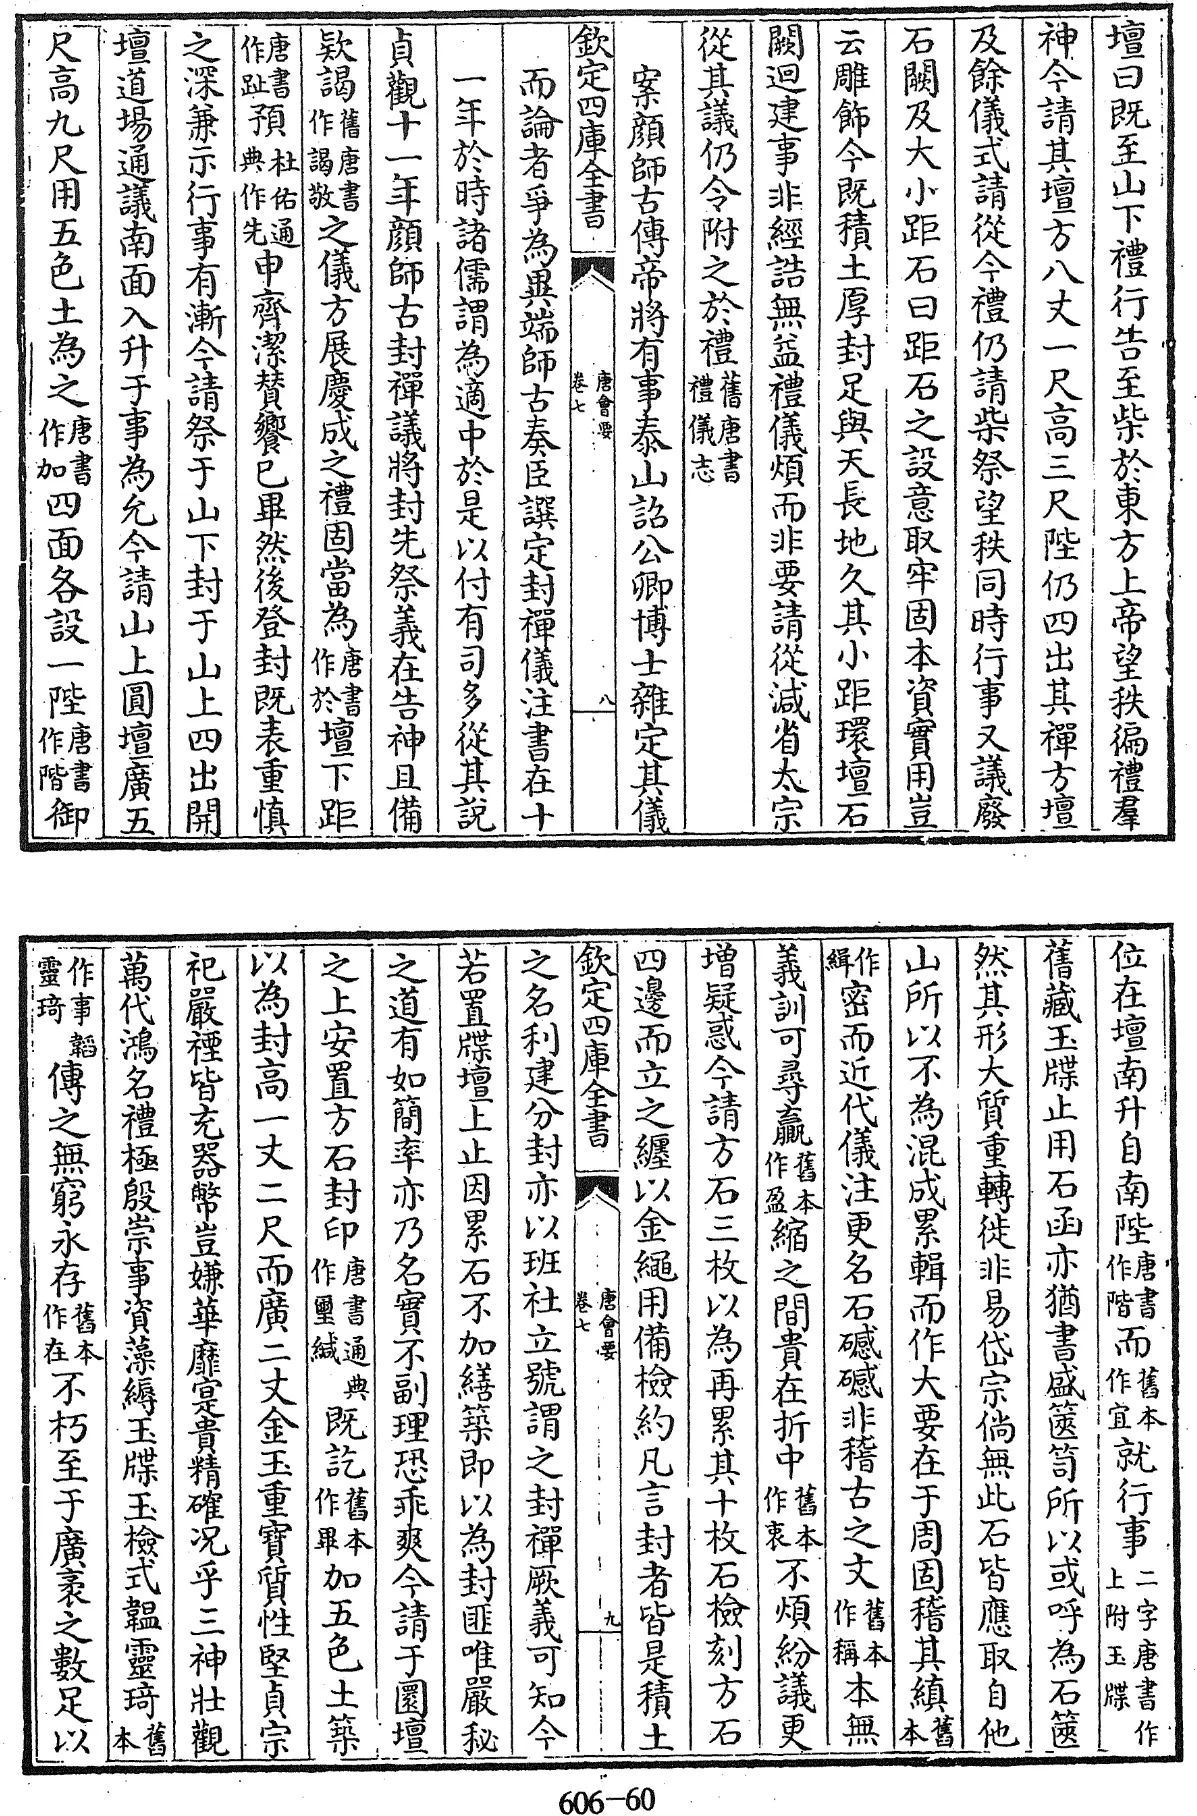 壇曰既至山下禮行告至柴於東方上帝望秩徧禮羣
神今請其壇方八丈一尺高三尺陛仍四出其禪方壇
及餘儀式請從今禮仍請柴祭望秩同時行事又議廢
石闕及大小距石曰距石之設意取牢固本資實用豈
云雕飾今既積土厚封足與天長地久其小距環壇石
闕迴建事非經誥無益禮儀煩而非要請從減省太宗
從其議仍令附之於禮舊唐書禮儀志
案顔師古傳帝將有事泰山詔公卿博士雜定其儀
欽定四庫全書 唐會要卷七 八
而論者爭為異端師古奏臣譔定封禪儀注書在十
一年於時諸儒謂為適中於是以付有司多從其説
貞觀十一年顔師古封禪議將封先祭義在告神且備
欵謁舊唐書作謁敬之儀方展慶成之禮固當為唐書作於壇下距
唐書作趾預杜佑通典作先申齊潔贊饗已畢然後登封既表重慎
之深兼示行事有漸今請祭于山下封于山上四出開
壇道場通議南面入升于事為允今請山上圓壇廣五
尺高九尺用五色土為之唐書作加四面各設一陛唐書作階御
位在壇南升自南陛唐書作階而舊本作宜就行事二字唐書作上附玉牒
舊藏玉牒止用石函亦猶書盛篋笥所以或呼為石篋
然其形大質重轉徙非易岱宗倘無此石皆應取自他
山所以不為混成累輯而作大要在于周固稽其縝舊本
作緝密而近代儀注更名石䃭䃭非稽古之文舊本作稱本無
義訓可尋贏舊本作盈縮之間貴在折中舊本作衷不煩紛議更
増疑惑今請方石三枚以為再累其十枚石檢刻方石
四邊而立之纏以金繩用備檢約凡言封者皆是積土
欽定四庫全書 唐會要卷七 九
之名利建分封亦以班社立號謂之封禪厥義可知今
若置牒壇上止因累石不加繕築即以為封匪唯嚴秘
之道有如簡率亦乃名實不副理恐乖爽今請于圜壇
之上安置方石封印唐書通典作璽緘既訖舊本作畢加五色土築
以為封高一丈二尺而廣二丈金玉重寳質性堅貞宗
祀嚴禋皆充器幣豈嫌華靡寔貴精確况乎三神壯觀
萬代鴻名禮極殷崇事資藻縟玉牒玉檢式韞靈琦舊本
作事韜靈琦傳之無窮永存舊本作在不朽至于廣袤之數足以
606-60